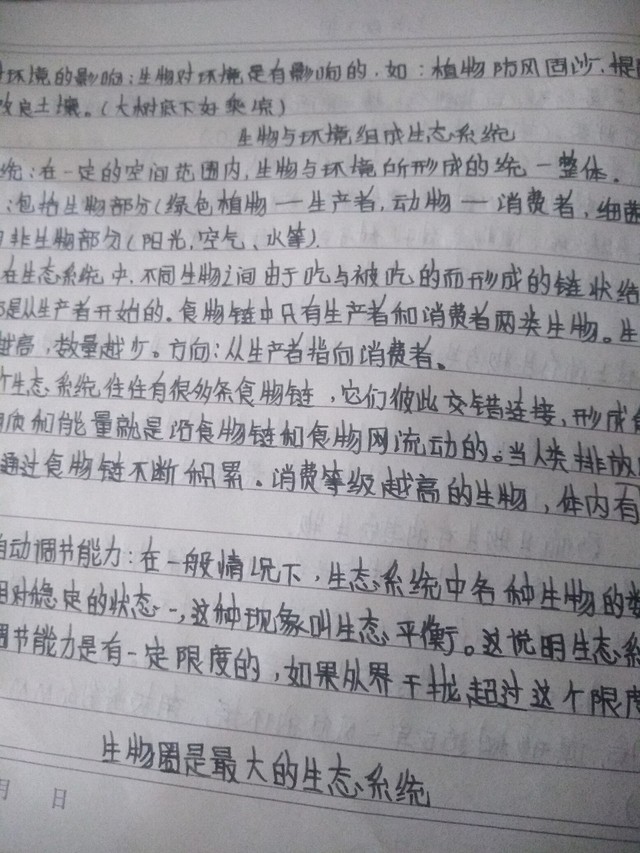 环境的影响：生物对环境是有影响的．如：植物防风固沙．提
改良土壤。（大树底下好乘凉）
生物与环境组成生态系统
统：在一定的空间范围内，生物与环境所形成的统一整体．
：包括生物部分（绿色植物—生产者，动物—消费者，细菌
非生物部分（阳光，空气、水等）．
在生态系统中，不同生物之间由于吃与被吃的而形成的链状结
是从生产者开始的。食物链中只有生产者和消费者两类生物。生
越高，数量越少。方向：从生产者指向消费者。
生态系统往往有很多条食物链，它们彼此交错连接，形成食
质和能量就是沿食物链和食物网流动的。当人类排放
通过食物链不断积累。消费等级越高的生物，体内有
自动调节能力：在一般情况下，生态系统中各种生物的数
相对稳定的状态-，这种现象叫生态平衡。这说明生态系
调节能力是有一定限度的，如果外界干扰超过这个限度
生物圈是最大的生态系统
月 日